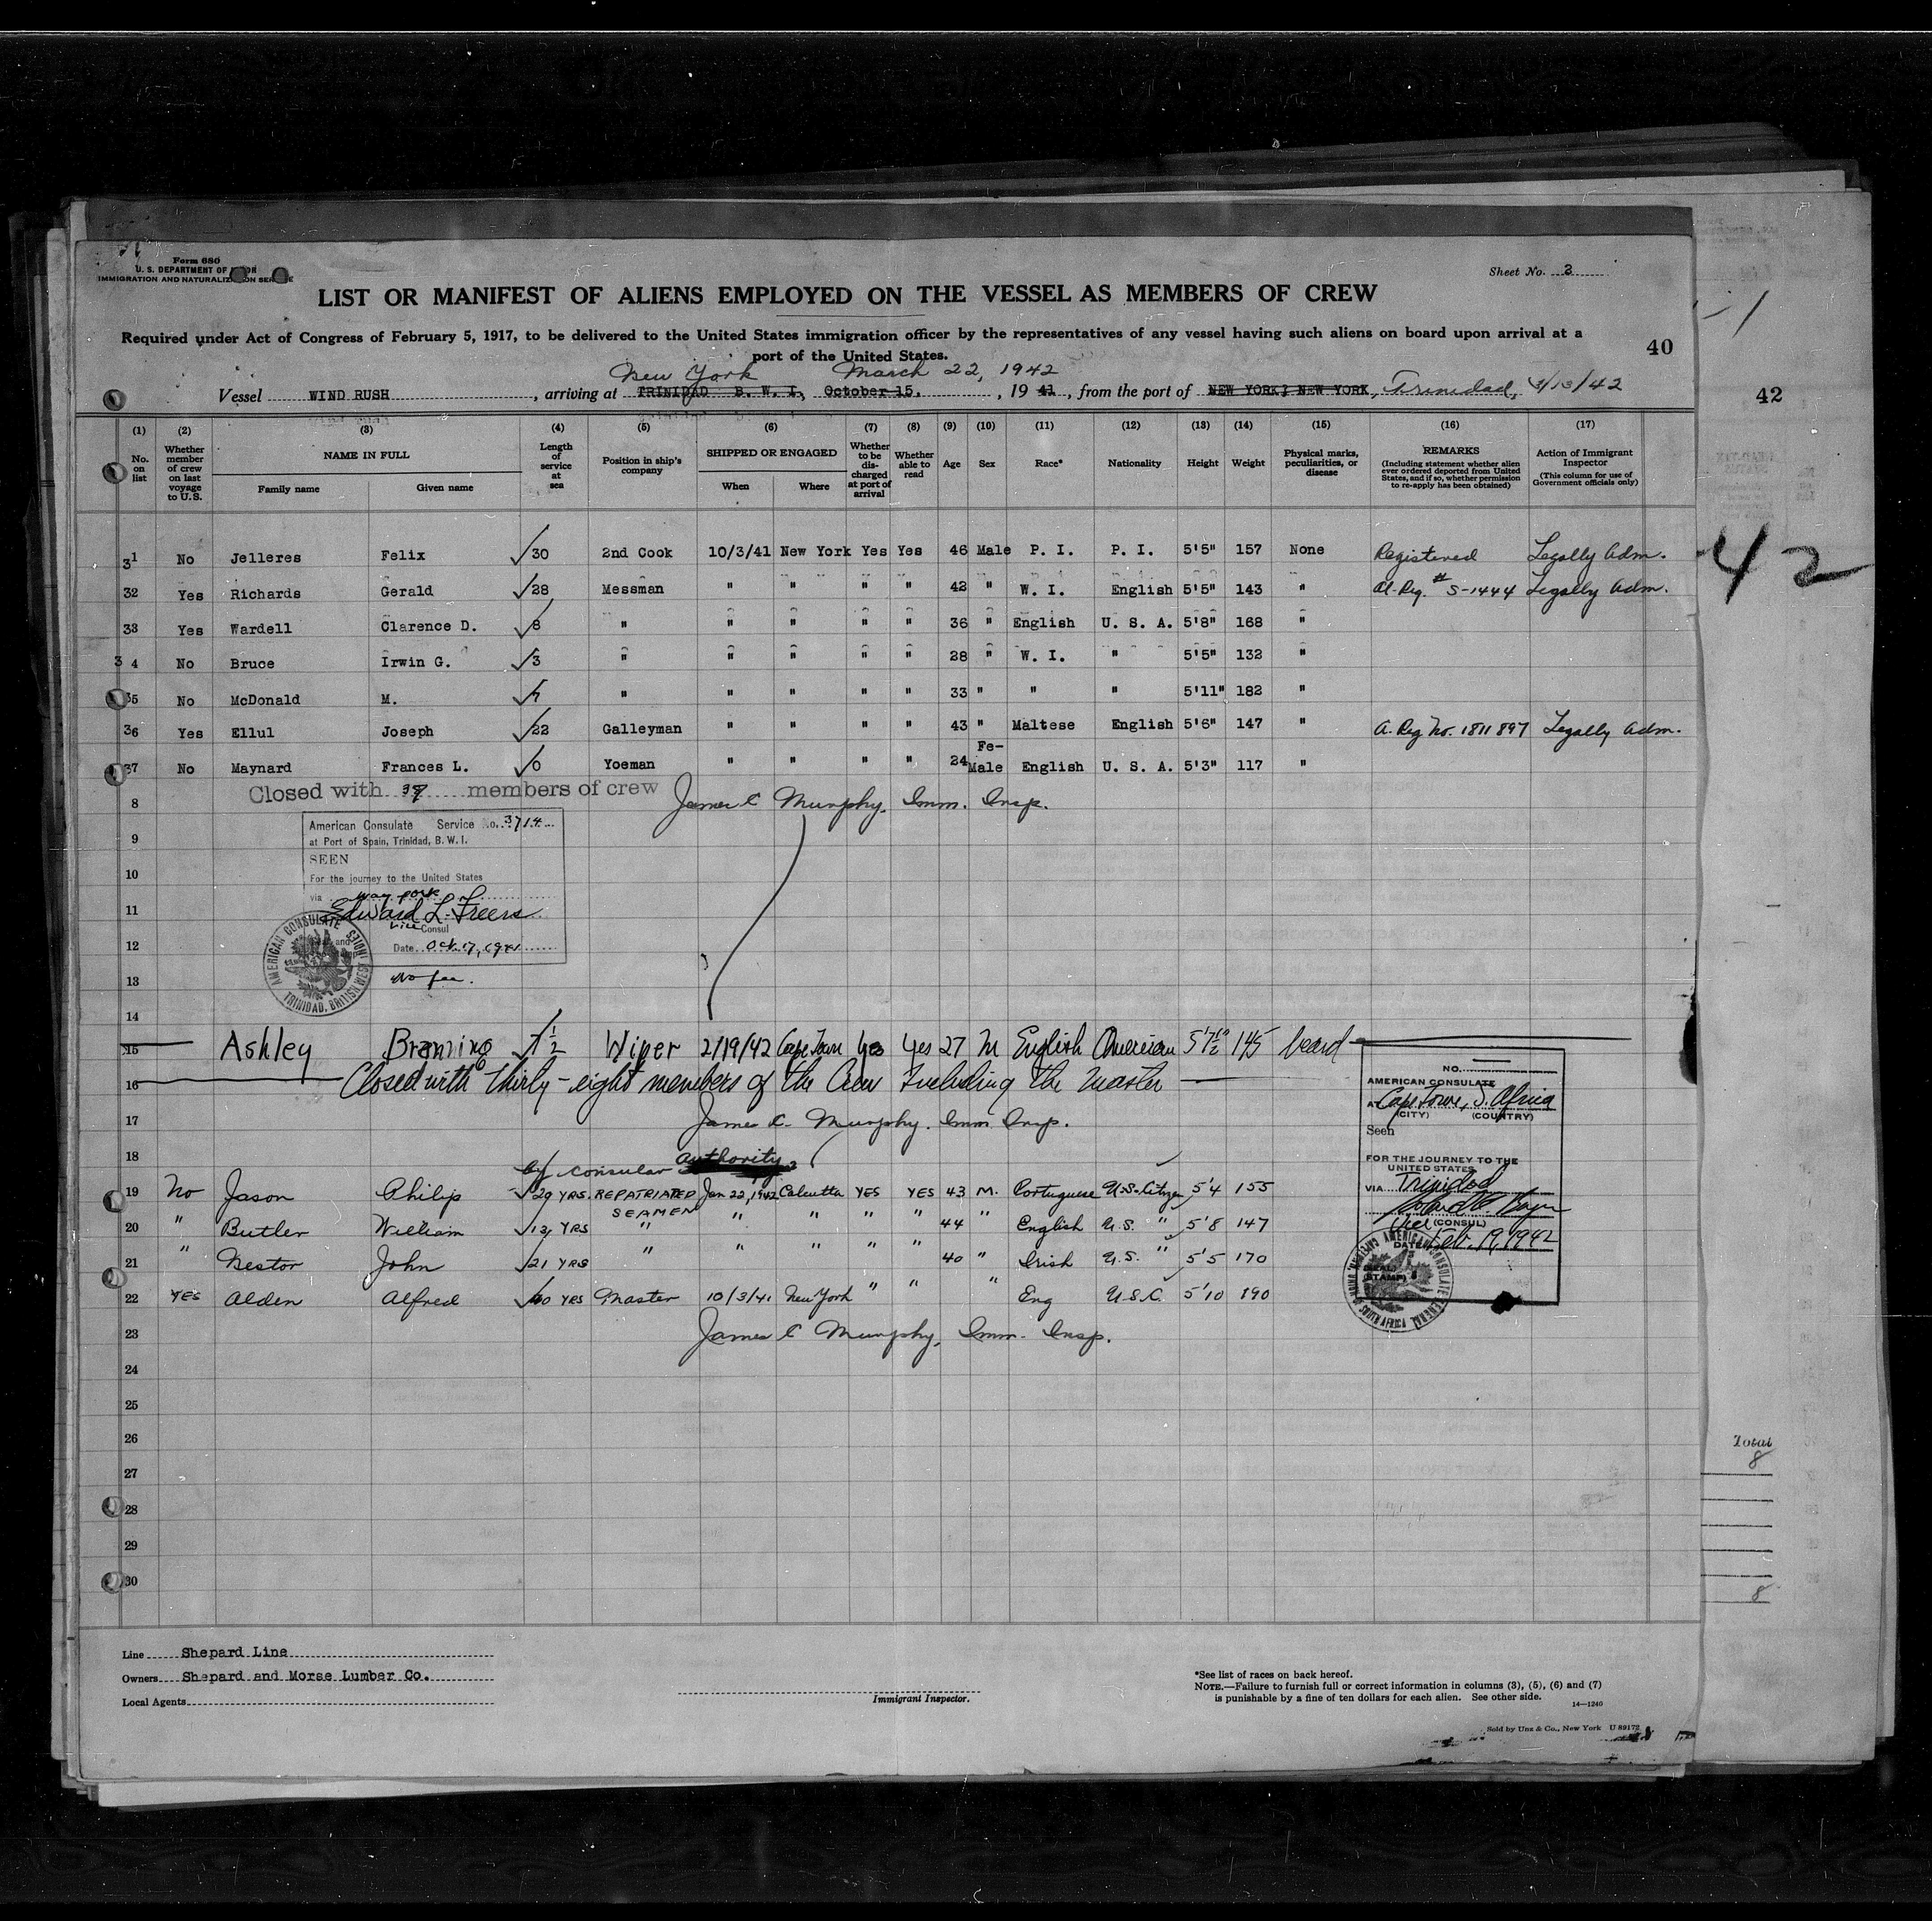 Form 680
U. S. DEPARTMENT OF
IMMIGRATION AND NATURALIZATION SERVICE
Sheet No. 3
LIST OR MANIFEST OF ALIENS EMPLOYED ON THE VESSEL AS MEMBERS OF CREW
Required under Act of Congress of February 5, 1917, to be delivered to the United States immigration officer by the representatives of any vessel having such aliens on board upon arrival at a
port of the United States.
40
New York March 22, 1942
Vessel WIND RUSH, arriving at TRINIDAD B. W. I., October 15, 19 41, from the port of NEW YORK, NEW YORK, Trinidad, 3/13/42
42
(1) (2) (3) (4) (5) (6) (7) (8) (9) (10) (11) (12) (13) (14) (15) (16) (17)
No. on list
Whether member of crew on last voyage to U.S.
NAME IN FULL
Family name Given name
Length of service at sea
Position in ship's company
SHIPPED OR ENGAGED
When Where
Whether to be discharged at port of arrival
Whether able to read
Age Sex Race* Nationality Height Weight
Physical marks, peculiarities, or disease
REMARKS
(Including statement whether alien ever ordered deported from United States, and if so, whether permission to re-apply has been obtained)
Action of Immigrant Inspector
(This column for use of Government officials only)
31 No Jelleres Felix 30 2nd Cook 10/3/41 New York Yes Yes 46 Male P. I. P. I. 5'5" 157 None Registered Legally Adm.
32 Yes Richards Gerald 28 Messman " " " " 42 " W. I. English 5'5" 143 " Al. Reg. # S-1444 Legally Adm.
33 Yes Wardell Clarence D. 8 " " " " " 36 " English U. S. A. 5'8" 168 "
34 No Bruce Irwin G. 3 " " " " " 28 " W. I. " 5'5" 132 "
35 No McDonald M. 7 " " " " " 33 " " " 5'11" 182 "
36 Yes Ellul Joseph 22 Galleyman " " " " 43 " Maltese English 5'6" 147 " A. Reg No. 1811897 Legally Adm.
37 No Maynard Frances L. 0 Yoeman " " " " 24 Fe-Male English U. S. A. 5'3" 117 "
42
Closed with 37 members of crew James C Murphy, Imm. Insp.
8
American Consulate Service No. 3714
at Port of Spain, Trinidad, B. W. I.
9
SEEN
10
For the journey to the United States
via way ports
11
Edward L. Freers
Vice Consul
12
Date Oct. 17, 1941
AMERICAN CONSULATE TRINIDAD, BRITISH WEST INDIES
13
No fee.
14
15 Ashley 7 1/2 Wiper 2/19/42 Cape Town Yes Yes 27 M English American 5'7 1/2" 145 beard
16 Closed with Thirty-eight members of the Crew Including the Master
17 James C. Murphy. Imm Insp.
18
by consular authority
19 No Jason Philip 29 YRS. REPATRIATED SEAMEN Jan 22, 1942 Calcutta YES YES 43 M. Portuguese U.S. Citizen 5'4 155
20 " Butler William 13 YRS " " " " " 44 " English U.S. " 5'8 147
21 " Nestor John 21 YRS " " " " " 40 " Irish U.S. " 5'5 170
22 YES Alden Alfred 40 YRS Master 10/3/41 New York " " " Eng U.S.C. 5'10 190
23 James C Murphy, Imm. Insp.
NO.
AMERICAN CONSULATE
AT Cape Town, S. Africa
(CITY) (COUNTRY)
Seen
FOR THE JOURNEY TO THE
UNITED STATES
VIA Trinidad
Vice (CONSUL)
DATE Feb. 19, 1942
(SEAL)
(STAMP)
24
25
26
27
28
29
30
Total
8
8
Line Shepard Line
Owners Shepard and Morse Lumber Co.
Local Agents
Immigrant Inspector.
*See list of races on back hereof.
NOTE.—Failure to furnish full or correct information in columns (3), (5), (6) and (7)
is punishable by a fine of ten dollars for each alien. See other side.
14—1240
Sold by Unz & Co., New York U 89172